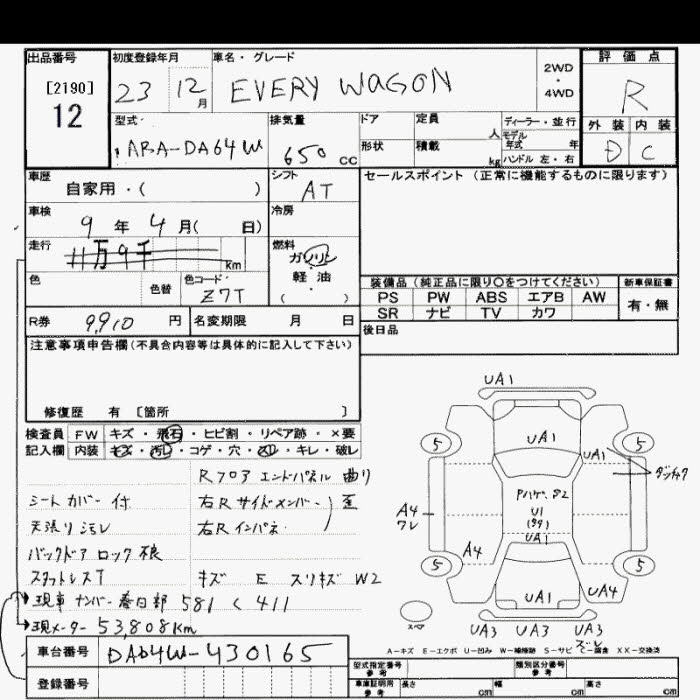 出品番号 初度登録年月 車名・グレード 評価点
[2190] 23 12月 EVERY WAGON 2WD・4WD R
12
型式 排気量 ドア 定員 人 ディーラー・並行 外装 内装
ABA-DA64W 650 cc 形状 積載 kg モデル年式 年 D C
ハンドル 左・右
車歴 シフト セールスポイント (正常に機能するものに限ります)
自家用・( ) AT
車検 冷房
9年 4月( 日)
走行 燃料
11万9千 km ガソリン
色 色替 色コード 軽・油 装備品 (純正品に限り○をつけてください) 新車保証書
Z7T ( ) PS PW ABS エアB AW 有・無
SR ナビ TV カワ
R券 9,910 円 名変期限 月 日 後日品
注意事項申告欄(不具合内容等は具体的に記入して下さい)
修復歴 有 [箇所 ]
検査員 FW キズ・飛石・ヒビ割・リペア跡・×要
記入欄 内装 キズ・汚レ・コゲ・穴・スレ・キレ・破レ
Rフロア エンドパネル 曲り
シートカバー付 右Rサイドメンバー 歪
天張り汚レ 右Rインパネ
バックドア ロック不良
スタットレスT キズ E スリキズ W2
現車ナンバー 春日部 581 く 411
現メーター 53,808km
車台番号 DA64W-430165
登録番号
UA1
5 UA1 UA1 5
A4 ワレ U1 UA1
A4
5 UA1 UA4 5
スペア UA3 UA3 UA3
A-キズ E-エクボ U-凹み W-補修跡 S-サビ C-腐食 XX-交換済
型式指定番号 参考 類別区分番号 参考
車庫証明用 参考 長さ cm 幅 cm 高さ cm